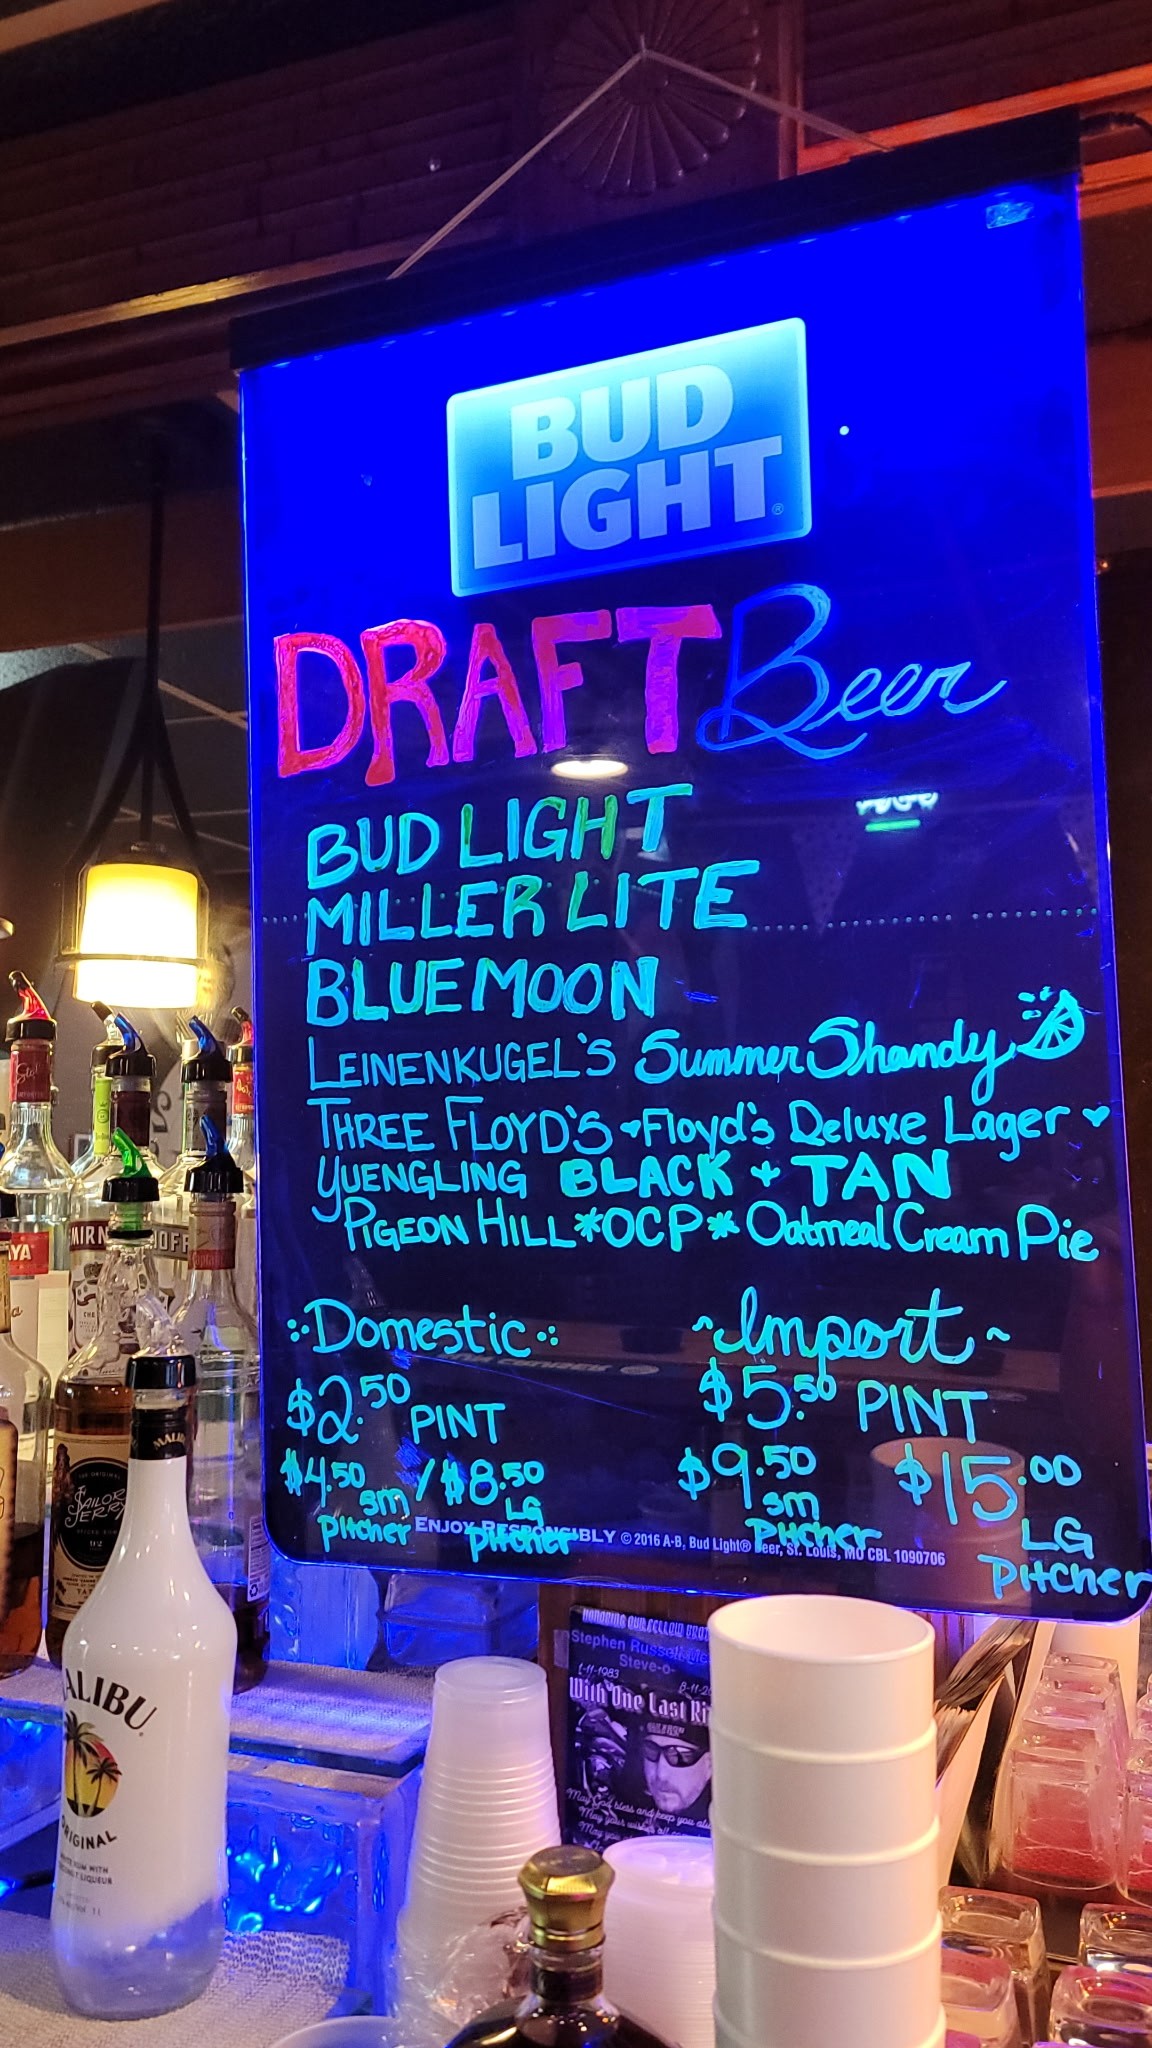 BUD
LIGHT®
DRAFT Beer
BUD LIGHT
MILLER LITE
BLUE MOON
LEINENKUGEL'S Summer Shandy
THREE FLOYD'S ♥Floyd's Deluxe Lager♥
YUENGLING BLACK + TAN
PIGEON HILL *OCP* Oatmeal Cream Pie
Domestic
$2.50 PINT
$4.50 sm Pitcher / $8.50 LG Pitcher
~Import~
$5.50 PINT
$9.50 sm Pitcher $15.00 LG Pitcher
ENJOY RESPONSIBLY © 2016 A-B, Bud Light® Beer, St. Louis, MO CBL 1090706
SAILOR
JERRY
MALIBU
ORIGINAL
Stephen
Steve-o-
1-11-1983
With One Last
May God bless and keep you